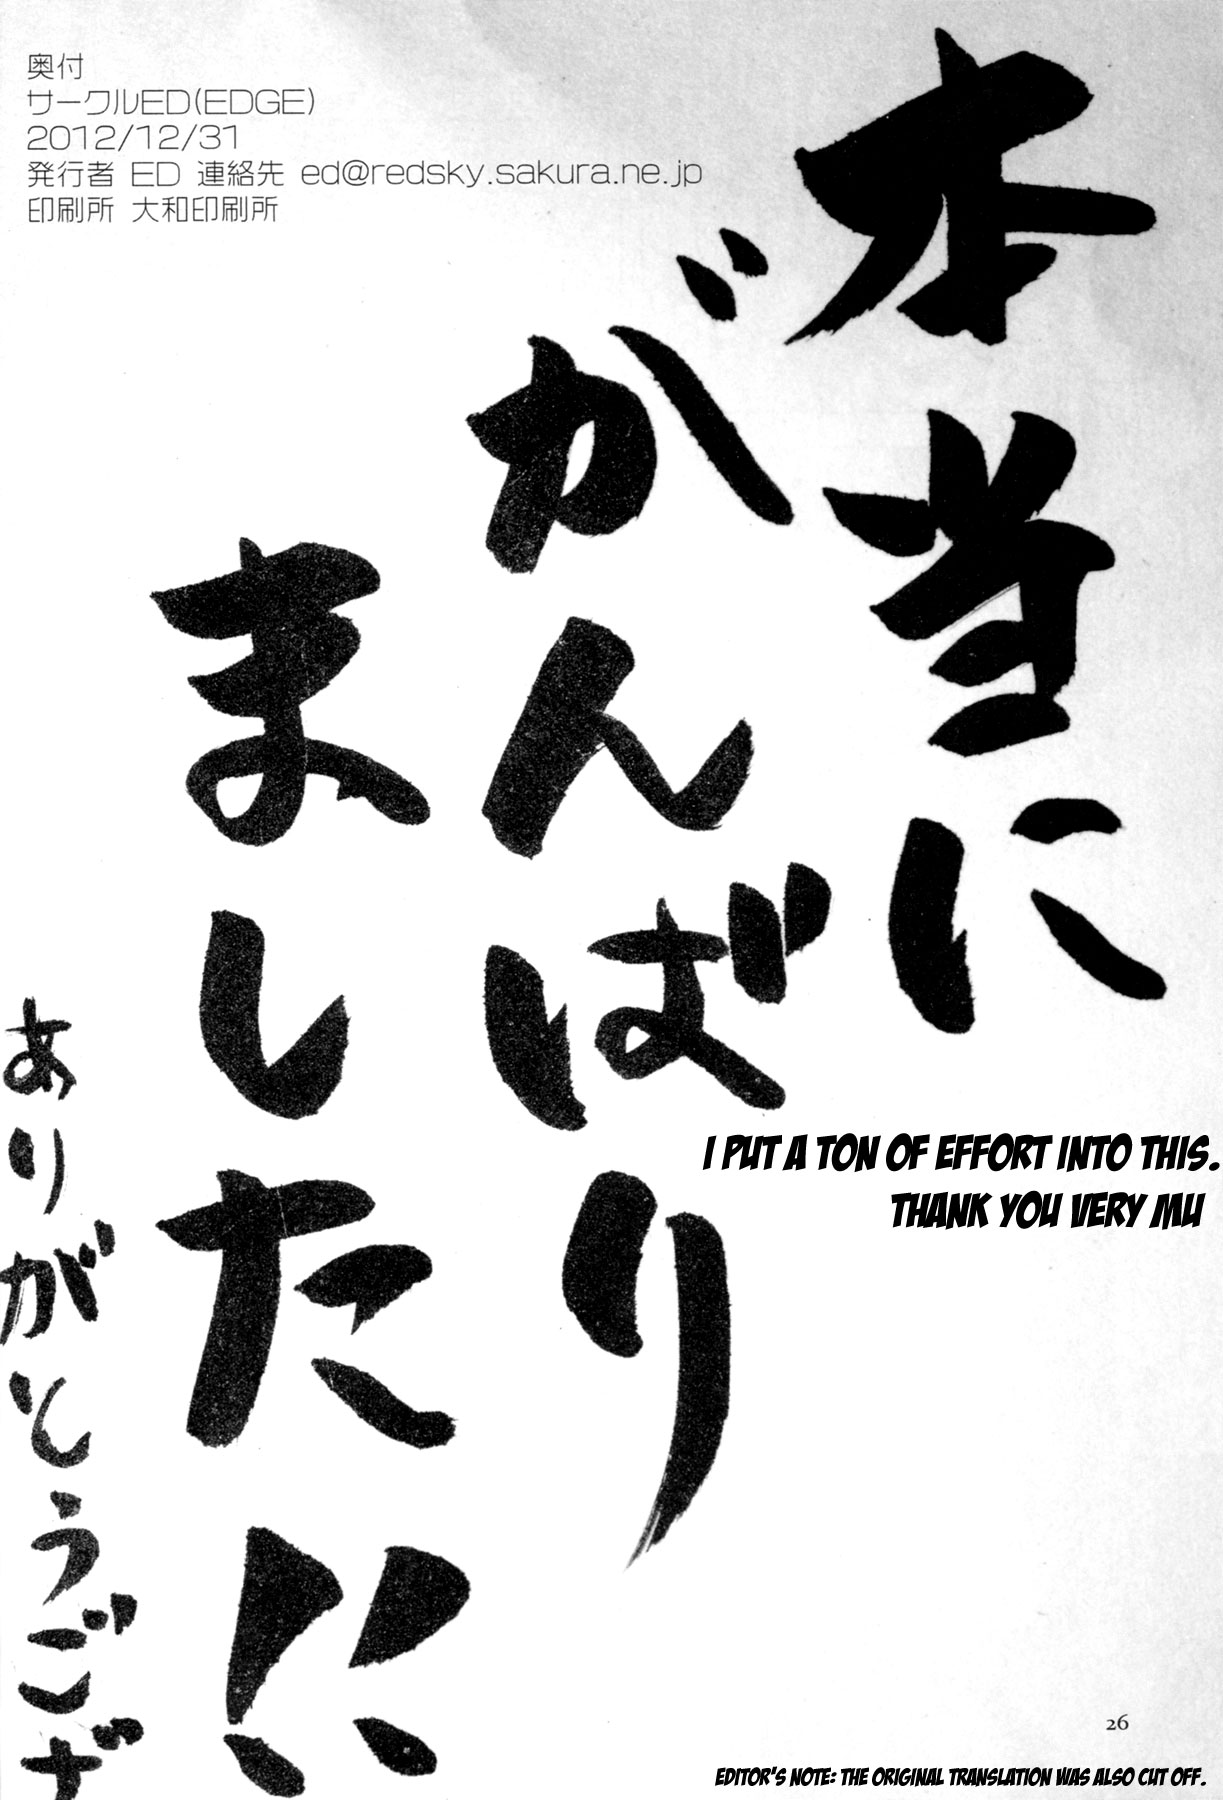 奥付
サークルED(EDGE)
2012/12/31
発行者 ED 連絡先 ed@redsky.sakura.ne.jp
印刷所 大和印刷所
本当に
がんばり
ました!!
ありがとうござ
I PUT A TON OF EFFORT INTO THIS.
THANK YOU VERY MU
26
EDITOR'S NOTE: THE ORIGINAL TRANSLATION WAS ALSO CUT OFF.